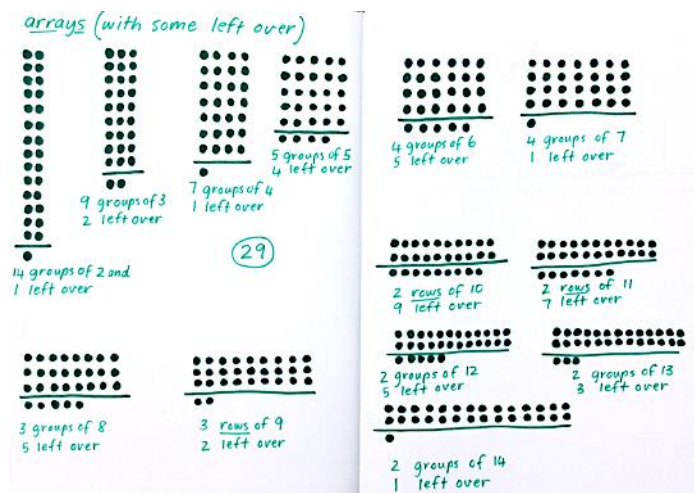 arrays (with some left over)
14 groups of 2 and
1 left over
9 groups of 3
2 left over
7 groups of 4
1 left over
5 groups of 5
4 left over
29
3 groups of 8
5 left over
3 rows of 9
2 left over
4 groups of 6
5 left over
4 groups of 7
1 left over
2 rows of 10
9 left over
2 rows of 11
7 left over
2 groups of 12
5 left over
2 groups of 13
3 left over
2 groups of 14
1 left over